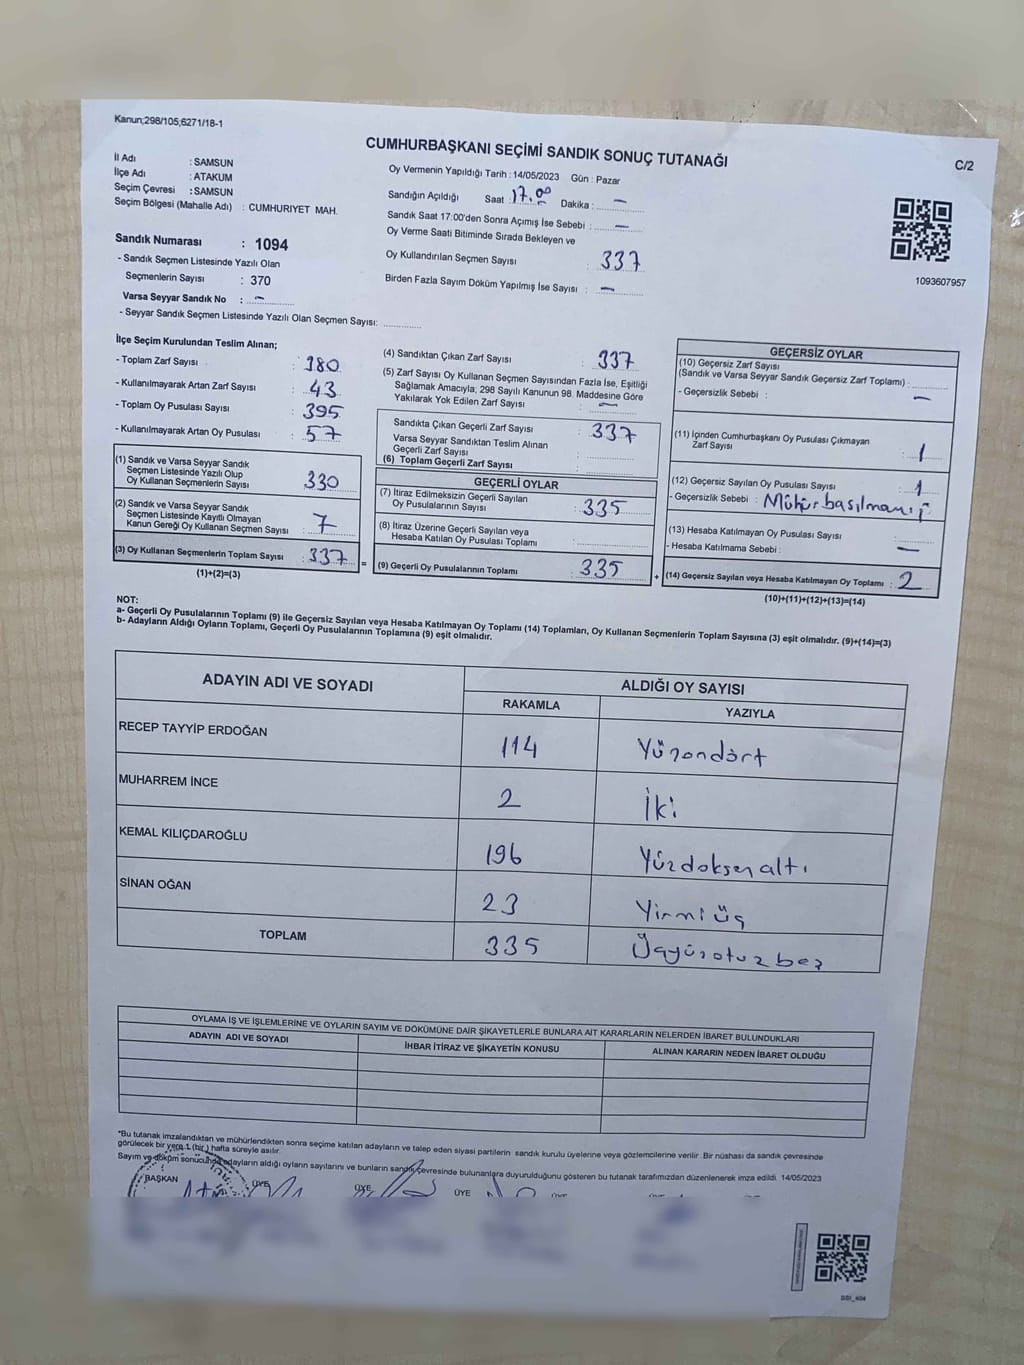 Kanun;298/105;6271/18-1
CUMHURBAŞKANI SEÇİMİ SANDIK SONUÇ TUTANAĞI
C/2
İl Adı : SAMSUN
İlçe Adı : ATAKUM
Seçim Çevresi : SAMSUN
Seçim Bölgesi (Mahalle Adı) : CUMHURIYET MAH.
Oy Vermenin Yapıldığı Tarih : 14/05/2023 Gün : Pazar
Sandığın Açıldığı Saat 17.00 Dakika : —
Sandık Saat 17:00'den Sonra Açımış İse Sebebi : —
Oy Verme Saati Bitiminde Sırada Bekleyen ve
Oy Kullandırılan Seçmen Sayısı : 337
Birden Fazla Sayım Döküm Yapılmış İse Sayısı : —
1093607957
Sandık Numarası : 1094
- Sandık Seçmen Listesinde Yazılı Olan
Seçmenlerin Sayısı : 370
Varsa Seyyar Sandık No : —
- Seyyar Sandık Seçmen Listesinde Yazılı Olan Seçmen Sayısı:
İlçe Seçim Kurulundan Teslim Alınan;
- Toplam Zarf Sayısı : 380
- Kullanılmayarak Artan Zarf Sayısı : 43
- Toplam Oy Pusulası Sayısı : 395
- Kullanılmayarak Artan Oy Pusulası : 57
(1) Sandık ve Varsa Seyyar Sandık
Seçmen Listesinde Yazılı Olup
Oy Kullanan Seçmenlerin Sayısı : 330
(2) Sandık ve Varsa Seyyar Sandık
Seçmen Listesinde Kayıtlı Olmayan
Kanun Gereği Oy Kullanan Seçmen Sayısı : 7
(3) Oy Kullanan Seçmenlerin Toplam Sayısı : 337
(1)+(2)=(3)
(4) Sandıktan Çıkan Zarf Sayısı : 337
(5) Zarf Sayısı Oy Kullanan Seçmen Sayısından Fazla İse, Eşitliği
Sağlamak Amacıyla; 298 Sayılı Kanunun 98. Maddesine Göre
Yakılarak Yok Edilen Zarf Sayısı : —
Sandıkta Çıkan Geçerli Zarf Sayısı : 337
Varsa Seyyar Sandıktan Teslim Alınan
Geçerli Zarf Sayısı :
(6) Toplam Geçerli Zarf Sayısı :
GEÇERLİ OYLAR
(7) İtiraz Edilmeksizin Geçerli Sayılan
Oy Pusulalarının Sayısı : 335
(8) İtiraz Üzerine Geçerli Sayılan veya
Hesaba Katılan Oy Pusulası Toplamı :
(9) Geçerli Oy Pusulalarının Toplamı : 335
=
+
GEÇERSİZ OYLAR
(10) Geçersiz Zarf Sayısı
(Sandık ve Varsa Seyyar Sandık Geçersiz Zarf Toplamı) :
- Geçersizlik Sebebi : —
(11) İçinden Cumhurbaşkanı Oy Pusulası Çıkmayan
Zarf Sayısı : 1
(12) Geçersiz Sayılan Oy Pusulası Sayısı : 1
- Geçersizlik Sebebi : Mühür basılmamış
(13) Hesaba Katılmayan Oy Pusulası Sayısı :
- Hesaba Katılmama Sebebi : —
(14) Geçersiz Sayılan veya Hesaba Katılmayan Oy Toplamı : 2
(10)+(11)+(12)+(13)=(14)
NOT:
a- Geçerli Oy Pusulalarının Toplamı (9) ile Geçersiz Sayılan veya Hesaba Katılmayan Oy Toplamı (14) Toplamları, Oy Kullanan Seçmenlerin Toplam Sayısına (3) eşit olmalıdır. (9)+(14)=(3)
b- Adayların Aldığı Oyların Toplamı, Geçerli Oy Pusulalarının Toplamına (9) eşit olmalıdır.
ADAYIN ADI VE SOYADI
ALDIĞI OY SAYISI
RAKAMLA YAZIYLA
RECEP TAYYİP ERDOĞAN 114 Yüzondört
MUHARREM İNCE 2 İki
KEMAL KILIÇDAROĞLU 196 Yüzdoksanaltı
SİNAN OĞAN 23 Yirmi üç
TOPLAM 335 Üçyüzotuzbeş
OYLAMA İŞ VE İŞLEMLERİNE VE OYLARIN SAYIM VE DÖKÜMÜNE DAİR ŞİKAYETLERLE BUNLARA AİT KARARLARIN NELERDEN İBARET BULUNDUKLARI
ADAYIN ADI VE SOYADI İHBAR İTİRAZ VE ŞİKAYETİN KONUSU ALINAN KARARIN NEDEN İBARET OLDUĞU
*Bu tutanak imzalandıktan ve mühürlendikten sonra seçime katılan adayların ve talep eden siyasi partilerin sandık kurulu üyelerine veya gözlemcilerine verilir. Bir nüshası da sandık çevresinde
görülecek bir yere 1 (bir) hafta süreyle asılır.
Sayım ve döküm sonucunda adayların aldığı oyların sayılarını ve bunların sandık çevresinde bulunanlara duyurulduğunu gösteren bu tutanak tarafımızdan düzenlenerek imza edildi. 14/05/2023
BAŞKAN ÜYE ÜYE ÜYE